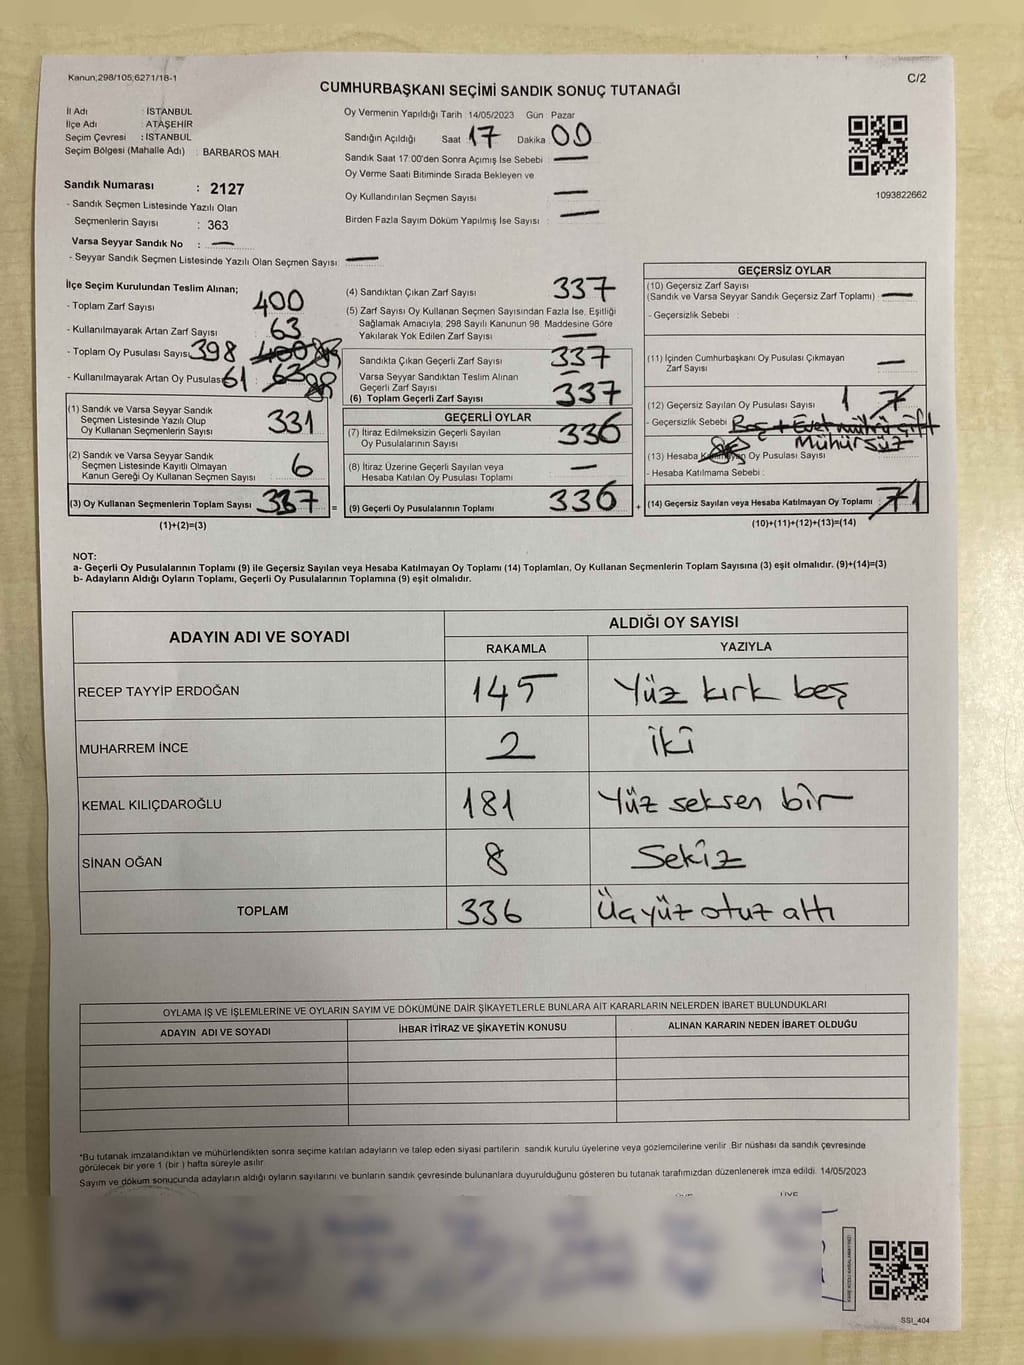 Kanun;298/105;6271/18-1
C/2
CUMHURBAŞKANI SEÇİMİ SANDIK SONUÇ TUTANAĞI
İl Adı : İSTANBUL
İlçe Adı : ATAŞEHİR
Seçim Çevresi : İSTANBUL
Seçim Bölgesi (Mahalle Adı) : BARBAROS MAH.
Sandık Numarası : 2127
- Sandık Seçmen Listesinde Yazılı Olan
Seçmenlerin Sayısı : 363
Varsa Seyyar Sandık No : —
- Seyyar Sandık Seçmen Listesinde Yazılı Olan Seçmen Sayısı: —
Oy Vermenin Yapıldığı Tarih 14/05/2023 Gün : Pazar
Sandığın Açıldığı Saat 17 Dakika 00
Sandık Saat 17:00'den Sonra Açımış İse Sebebi : —
Oy Verme Saati Bitiminde Sırada Bekleyen ve
Oy Kullandırılan Seçmen Sayısı —
Birden Fazla Sayım Döküm Yapılmış İse Sayısı : —
1093822662
İlçe Seçim Kurulundan Teslim Alınan;
- Toplam Zarf Sayısı 400
- Kullanılmayarak Artan Zarf Sayısı 63
- Toplam Oy Pusulası Sayısı 398 400
- Kullanılmayarak Artan Oy Pusulası 61 : 63
(1) Sandık ve Varsa Seyyar Sandık
Seçmen Listesinde Yazılı Olup
Oy Kullanan Seçmenlerin Sayısı 331
(2) Sandık ve Varsa Seyyar Sandık
Seçmen Listesinde Kayıtlı Olmayan
Kanun Gereği Oy Kullanan Seçmen Sayısı 6
(3) Oy Kullanan Seçmenlerin Toplam Sayısı 337
(1)+(2)=(3)
=
(4) Sandıktan Çıkan Zarf Sayısı 337
(5) Zarf Sayısı Oy Kullanan Seçmen Sayısından Fazla İse, Eşitliği
Sağlamak Amacıyla; 298 Sayılı Kanunun 98. Maddesine Göre
Yakılarak Yok Edilen Zarf Sayısı —
Sandıkta Çıkan Geçerli Zarf Sayısı 337
Varsa Seyyar Sandıktan Teslim Alınan
Geçerli Zarf Sayısı —
(6) Toplam Geçerli Zarf Sayısı 337
GEÇERLİ OYLAR
(7) İtiraz Edilmeksizin Geçerli Sayılan
Oy Pusulalarının Sayısı 336
(8) İtiraz Üzerine Geçerli Sayılan veya
Hesaba Katılan Oy Pusulası Toplamı —
(9) Geçerli Oy Pusulalarının Toplamı 336
+
GEÇERSİZ OYLAR
(10) Geçersiz Zarf Sayısı
(Sandık ve Varsa Seyyar Sandık Geçersiz Zarf Toplamı) : —
- Geçersizlik Sebebi :
(11) İçinden Cumhurbaşkanı Oy Pusulası Çıkmayan
Zarf Sayısı —
(12) Geçersiz Sayılan Oy Pusulası Sayısı 1 7
- Geçersizlik Sebebi : Boş + Evet mührü çift
Mühürsüz
(13) Hesaba Katılmayan Oy Pusulası Sayısı
- Hesaba Katılmama Sebebi :
(14) Geçersiz Sayılan veya Hesaba Katılmayan Oy Toplamı : 7 1
(10)+(11)+(12)+(13)=(14)
NOT:
a- Geçerli Oy Pusulalarının Toplamı (9) ile Geçersiz Sayılan veya Hesaba Katılmayan Oy Toplamı (14) Toplamları, Oy Kullanan Seçmenlerin Toplam Sayısına (3) eşit olmalıdır. (9)+(14)=(3)
b- Adayların Aldığı Oyların Toplamı, Geçerli Oy Pusulalarının Toplamına (9) eşit olmalıdır.
ADAYIN ADI VE SOYADI
ALDIĞI OY SAYISI
RAKAMLA YAZIYLA
RECEP TAYYİP ERDOĞAN 145 Yüz kırk beş
MUHARREM İNCE 2 İki
KEMAL KILIÇDAROĞLU 181 Yüz seksen bir
SİNAN OĞAN 8 Sekiz
TOPLAM 336 Üçyüz otuz altı
OYLAMA İŞ VE İŞLEMLERİNE VE OYLARIN SAYIM VE DÖKÜMÜNE DAİR ŞİKAYETLERLE BUNLARA AİT KARARLARIN NELERDEN İBARET BULUNDUKLARI
ADAYIN ADI VE SOYADI İHBAR İTİRAZ VE ŞİKAYETİN KONUSU ALINAN KARARIN NEDEN İBARET OLDUĞU
*Bu tutanak imzalandıktan ve mühürlendikten sonra seçime katılan adayların ve talep eden siyasi partilerin sandık kurulu üyelerine veya gözlemcilerine verilir. Bir nüshası da sandık çevresinde
görülecek bir yere 1 (bir) hafta süreyle asılır.
Sayım ve döküm sonucunda adayların aldığı oyların sayılarını ve bunların sandık çevresinde bulunanlara duyurulduğunu gösteren bu tutanak tarafımızdan düzenlenerek imza edildi. 14/05/2023
SSI_404